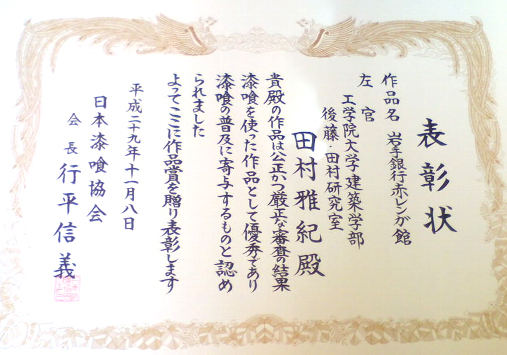 表彰状
作品名 岩手銀行赤レンガ館
左官
工学院大学建築学部
後藤・田村研究室
田村雅紀殿
貴殿の作品は公正かつ厳正な審査の結果
漆喰を使った作品として優秀であり
漆喰の普及に寄与するものと認め
られました
よってここに作品賞を贈り表彰します
平成二十九年十一月八日
日本漆喰協会
会長 行平信義